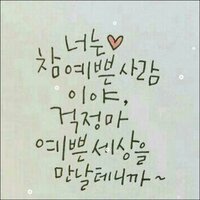 너는♥
참 예쁜 사람
이야,
걱정마
예쁜 세상을
만날테니까~